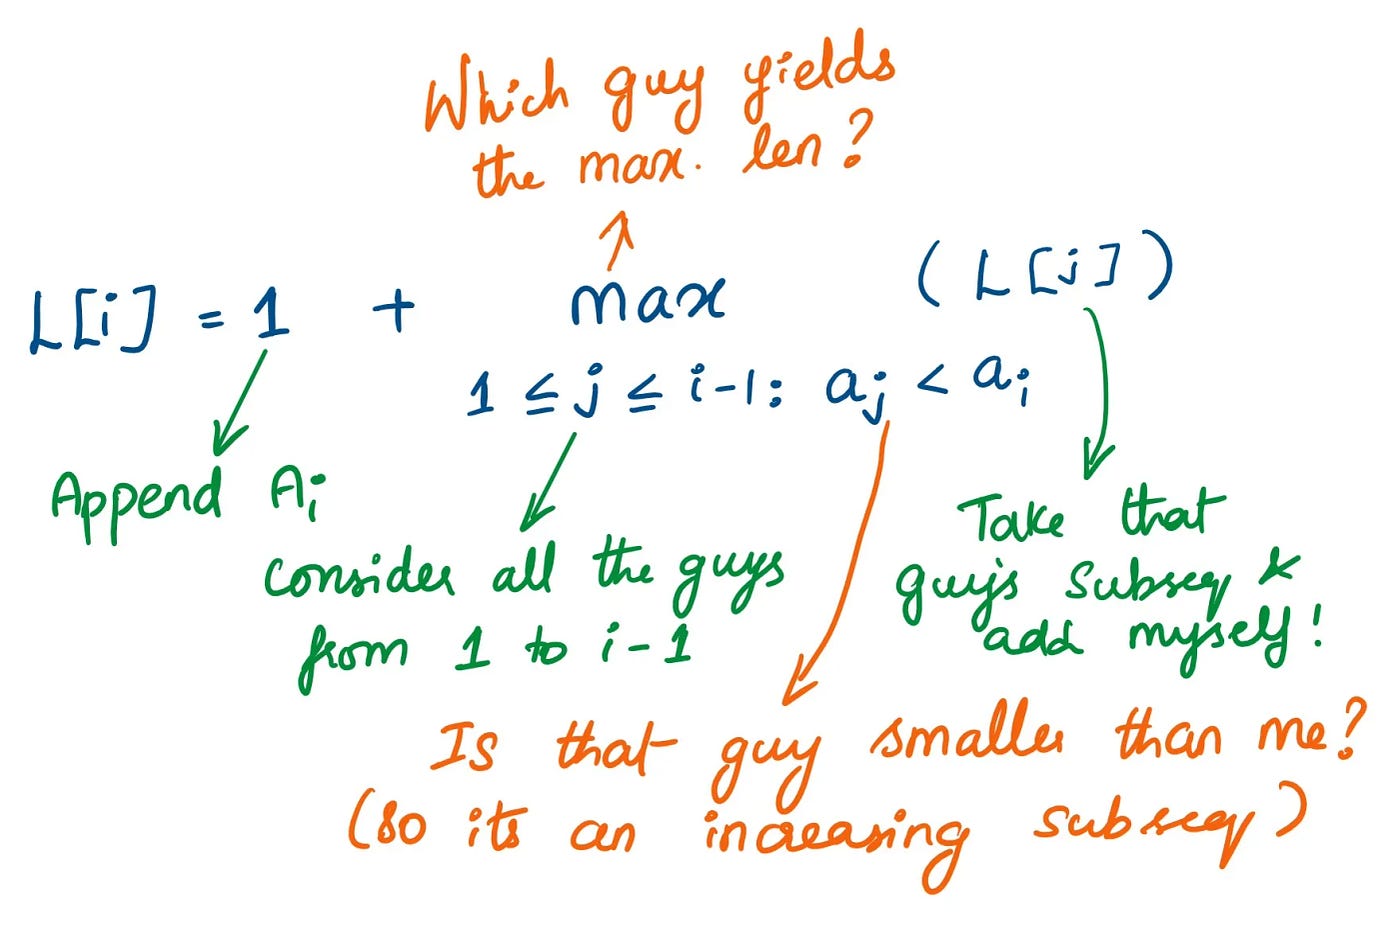 Which guy yields
the max. len?
L[i] = 1 + max (L[j])
1 ≤ j ≤ i-1: aj < ai
Append Ai
consider all the guys
from 1 to i-1
Take that
guy's subseq &
add myself!
Is that guy smaller than me?
(so its an increasing subseq)